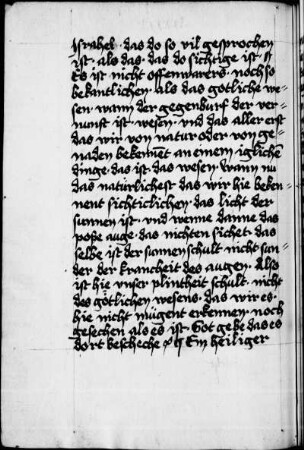 Israhel · das do so vil gesprochen
ist · als das · das do sichtige ist ·
Es ist nicht offenwarers · noch so
bekantlichen · als das götliche we¬
sen · wann der gegenburf der ver¬
nunft ist wesen · vnd das aller erst
das wir von natur oder von ge¬
naden bekennēt an einem iglichē
dinge · das ist · das wesen · wann nu
das naturlichest das wir hie beken¬
nent sichticlichen · das licht der
sunnen ist · vnd wenne danne das
poße auge · das nichten sichet · das
selbe ist der sunnen schult nicht sun¬
der der kranckeit des augen · Also
ist hie vnser plintheit schult · nicht
des götlichen wesens · das wir es ·
hie nicht mügent erkennen · noch
gesechen als es ist · Got gebe das es
dort bescheche Ein heiliger